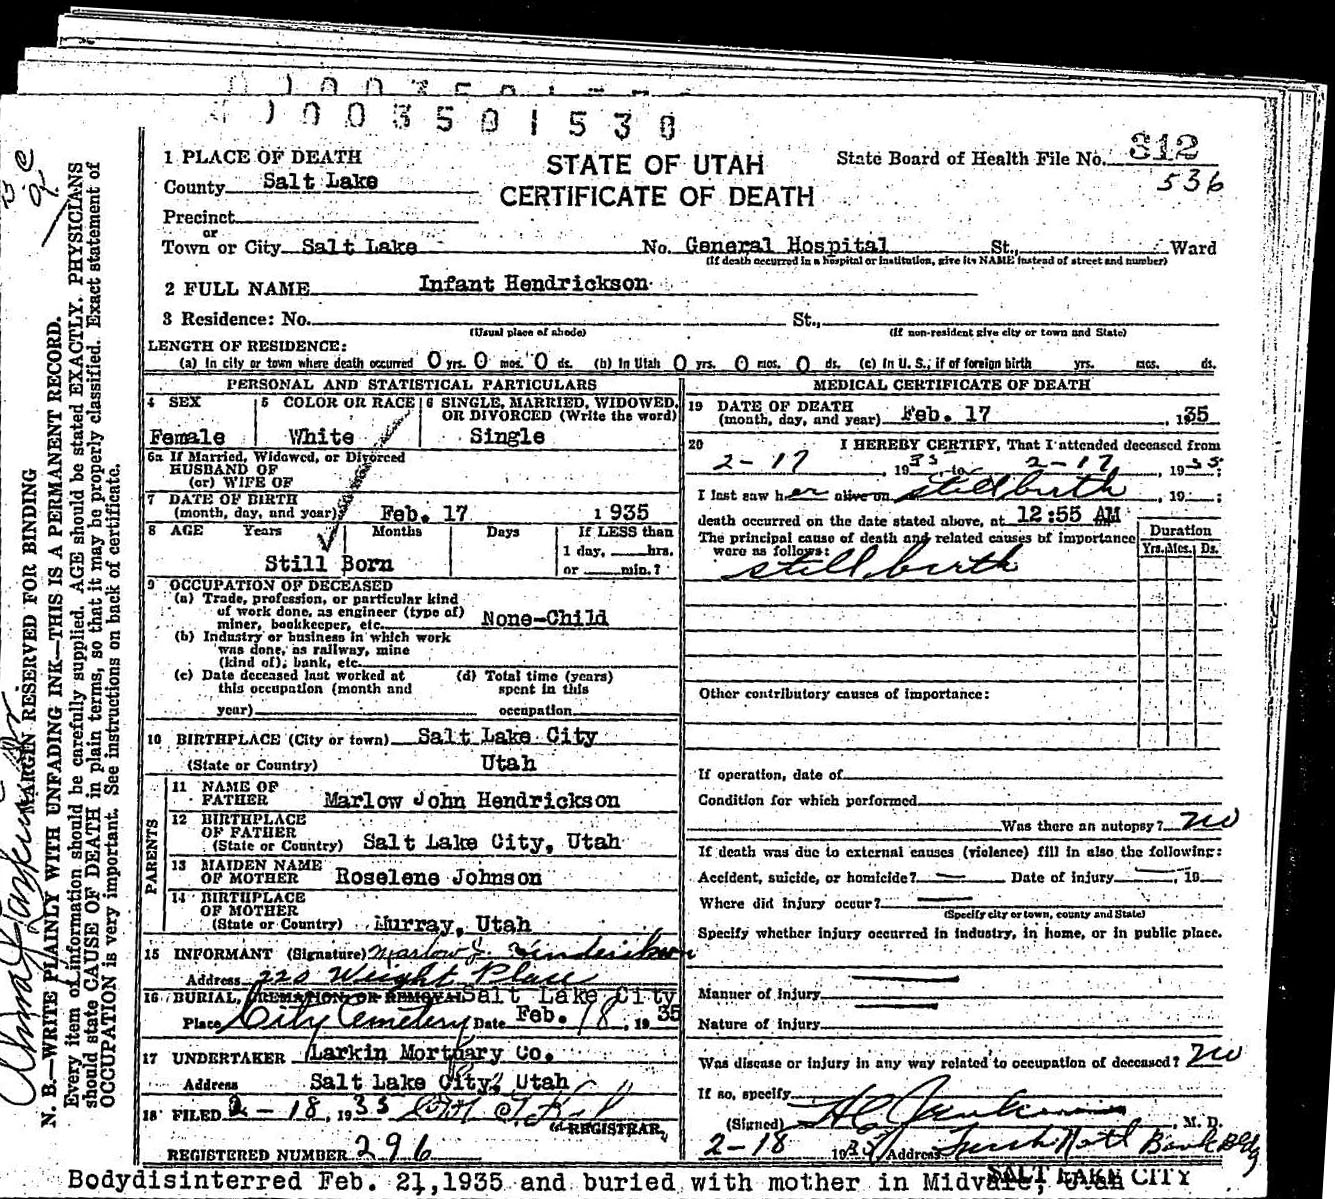 1003501530
1 PLACE OF DEATH
STATE OF UTAH
CERTIFICATE OF DEATH
State Board of Health File No. 312
536
County Salt Lake
Precinct
or
Town or City Salt Lake No. General Hospital St., Ward
(If death occurred in a hospital or institution, give its NAME instead of street and number)
2 FULL NAME Infant Hendrickson
3 Residence: No. St.,
(Usual place of abode) (If non-resident give city or town and State)
LENGTH OF RESIDENCE:
(a) In city or town where death occurred 0 yrs. 0 mos. 0 ds. (b) In Utah 0 yrs. 0 mos. 0 ds. (c) In U. S., if of foreign birth yrs. mos. ds.
PERSONAL AND STATISTICAL PARTICULARS
4 SEX 5 COLOR OR RACE 6 SINGLE, MARRIED, WIDOWED, OR DIVORCED (Write the word)
Female White Single
6a If Married, Widowed, or Divorced
HUSBAND OF
(or) WIFE OF
7 DATE OF BIRTH
(month, day, and year) Feb. 17 1935
8 AGE Years Months Days If LESS than
1 day, hrs.
or min.?
Still Born
9 OCCUPATION OF DECEASED
(a) Trade, profession, or particular kind
of work done, as engineer (type of)
miner, bookkeeper, etc. None-Child
(b) Industry or business in which work
was done, as railway, mine
(kind of), bank, etc.
(c) Date deceased last worked at
this occupation (month and
year)
(d) Total time (years)
spent in this
occupation
10 BIRTHPLACE (City or town) Salt Lake City
(State or Country) Utah
PARENTS
11 NAME OF
FATHER Marlow John Hendrickson
12 BIRTHPLACE
OF FATHER
(State or Country) Salt Lake City, Utah
13 MAIDEN NAME
OF MOTHER Roselene Johnson
14 BIRTHPLACE
OF MOTHER
(State or Country) Murray, Utah
15 INFORMANT (Signature) Marlow J. Hendrickson
Address 220 Weight Place
16 BURIAL, CREMATION, OR REMOVAL Salt Lake City
Place City Cemetery Date Feb. 18, 1935
17 UNDERTAKER Larkin Mortuary Co.
Address Salt Lake City, Utah
18 FILED 2-18, 1935
REGISTRAR
REGISTERED NUMBER 296
MEDICAL CERTIFICATE OF DEATH
19 DATE OF DEATH
(month, day, and year) Feb. 17, 135
20 I HEREBY CERTIFY, That I attended deceased from
2-17, 1935, to 2-17, 1935;
I last saw her alive on stillbirth, 19 ;
death occurred on the date stated above, at 12:55 AM
The principal cause of death and related causes of importance
were as follows:
Duration
Yrs. Mos. Ds.
stillbirth
Other contributory causes of importance:
If operation, date of
Condition for which performed
Was there an autopsy? no
If death was due to external causes (violence) fill in also the following:
Accident, suicide, or homicide? — Date of injury —, 19
Where did injury occur? —
(Specify city or town, county and State)
Specify whether injury occurred in industry, in home, or in public place.
Manner of injury
Nature of injury
Was disease or injury in any way related to occupation of deceased? no
If so, specify
(Signed) , M. D.
2-18 1935 Address Natl Bank Bldg
SALT LAKE CITY
Bodydisinterred Feb. 21,1935 and buried with mother in Midvale, Utah
MARGIN RESERVED FOR BINDING
N. B.—WRITE PLAINLY WITH UNFADING INK—THIS IS A PERMANENT RECORD.
Every item of information should be carefully supplied. AGE should be stated EXACTLY. PHYSICIANS
should state CAUSE OF DEATH in plain terms, so that it may be properly classified. Exact statement of
OCCUPATION is very important. See instructions on back of certificate.